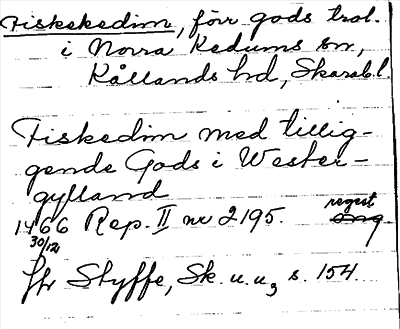 Fiskekedim, förr gods trol.
i Norra Kedums sn,
Kållands hd, Skarab.l.
Fiskedim med tillig-
gende Gods i Wester-
gylland
1466 Rep. II nr 2195. regest
30/12
Styffe, Sk. u. u3 s. 154.